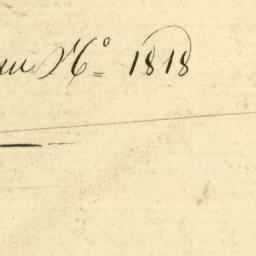 Nº 1818